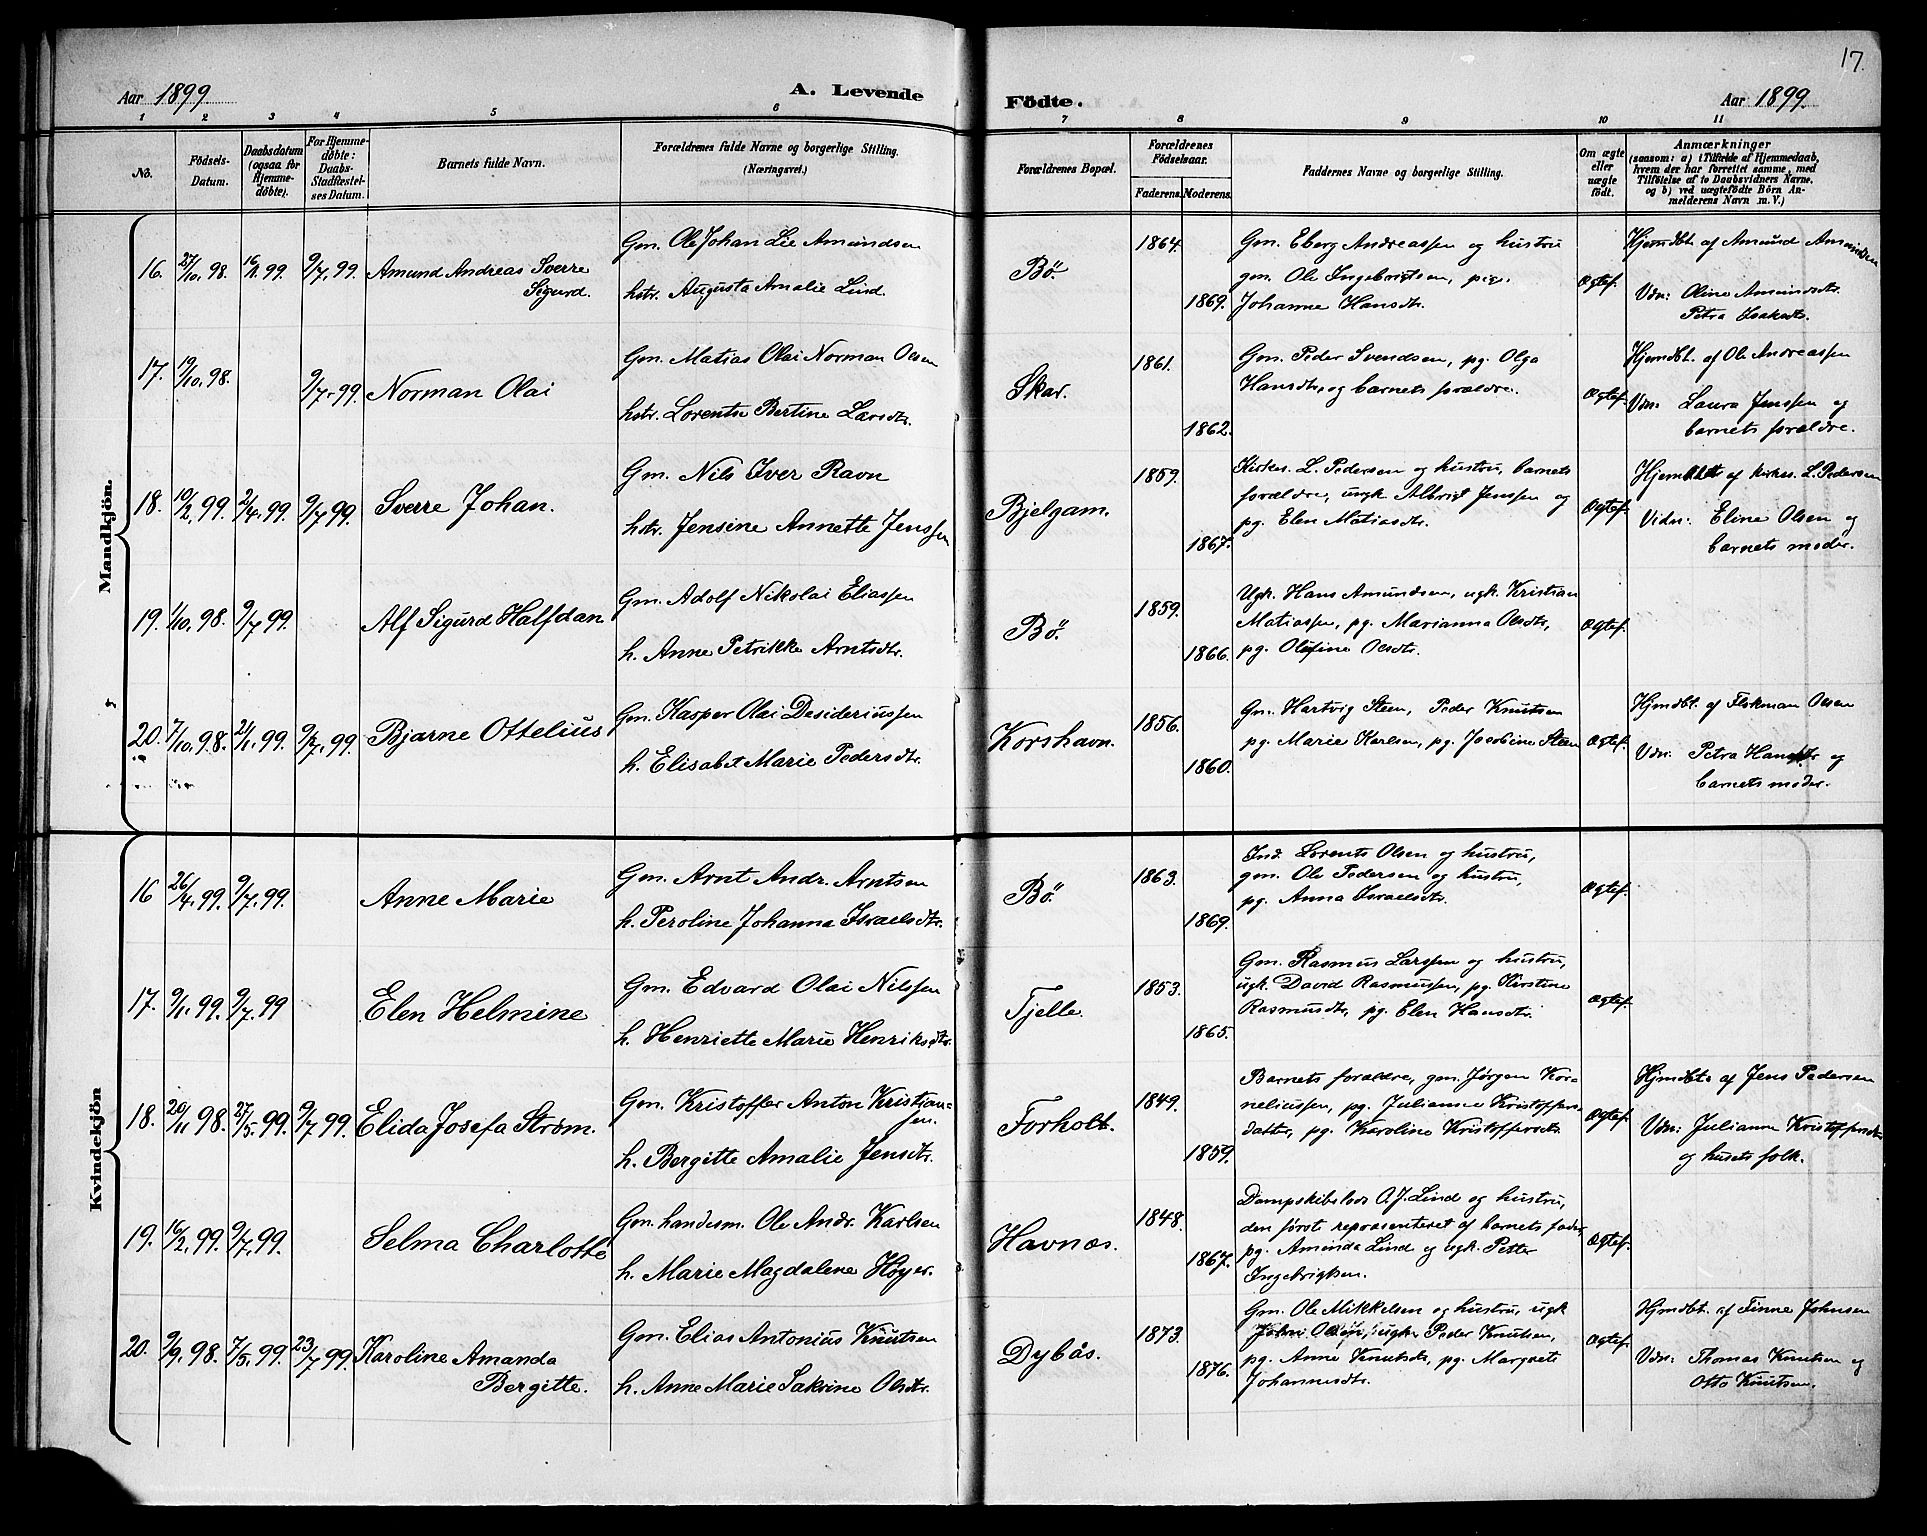 17.
Aar 1899. A. Levende Födte. Aar 1899.
1 2 3 4 5 6 7 8 9 10 11
No. Födsels-Datum. Daabsdatum (ogsaa for Hjemmedöbte). For Hjemmedöbte: Daabs-Stadfæstelses Datum. Barnets fulde Navn. Forældrenes fulde Navne og borgerlige Stilling. (Næringsvei.) Forældrenes Bopæl. Forældrenes Födselsaar. Faderens. Moderens. Faddernes Navne og borgerlige Stilling. Om ægte eller uægte födt. Anmærkninger (saasom: a) i Tilfælde af Hjemmedaab, hvem der har forrettet samme, med Tilföielse af to Daabsvidners Navne, og b) ved uægtefödte Börn Anmelderens Navn m. V.)
Mandkjön.
16. 27/10. 98. 16/1. 99. 9/7. 99. Amund Andreas Sverre
Sigurd.
Gm. Ole Johan Lie Amundsen
hstr. Augusta Amalie Lind.
Bø. 1864. 1869.
Gm. Eberg Andreassen og hustru
gm. Ole Ingebrigtsen, pige.
Johanne Hansdtr.
Ægtef.
Hjemdbt. af Amund Amundsen
Vdn: Oline Amundsdtr.
Petra Isaksdtr.
17. 19/10. 98. 9/7. 99. Norman Olai
Gm. Matias Olai Norman Olsen
hstr. Lorentse Bertine Larsdtr.
Skar. 1861. 1862.
Gm. Peder Svendsen, pg. Olga
Hansdtr, og barnets forældre.
Ægtef.
Hjemdbt. af Ole Andreassen
Vdn: Laura Jenssen og
barnets forældre.
18. 10/2. 99. 2/4. 99. 9/7. 99. Sverre Johan.
Gm. Nils Iver Ravn
hstr. Jensine Annette Jenssen
Bjelgam. 1859. 1867.
Kirkes. L. Pedersen og hustru, barnets
forældre, ungk. Albrigt Jenssen og
pg. Elen Matiasdtr.
Ægtef.
Hjemdbt af kirkes. L. Pedersen
Vidn: Eline Olsen og
barnets moder.
19. 1/10. 98. 9/7. 99. Alf Sigurd Halfdan
Gm. Adolf Nikolai Eliassen
h. Anne Petrikke Arntsdtr.
Bø. 1859. 1866.
Ugk. Hans Amundsen, ugk. Kristian
Matiassen, pg. Marianna Olsdtr,
pg. Olufine Olsdtr.
Ægtef.
20. 7/10. 98. 2/1. 99. 9/7. 99. Bjarne Ottelius
Gm. Kasper Olai Desideriussen
h. Elisabet Marie Pedersdtr.
Korshavn. 1856. 1860.
Gm. Hartvig Steen, Peder Knutsen
pg. Marie Karlsen, pg. Jacobine Steen
Ægtef.
Hjmdbt. af Flokman Olsen
Vdn: Petra Hansdtr og
barnets moder.
Kvindekjön
16 26/4. 99. 9/7. 99. Anne Marie
Gm. Arnt Andr. Arntsen
h. Peroline Johanna Israelsdtr.
Bø. 1863. 1869.
Ind. Lorents Olsen og hustru,
gm. Ole Pedersen og hustru,
pg. Anna Israelsdtr.
Ægtef.
17. 9/1. 99. 9/7. 99 Elen Helmine
Gm. Edvard Olai Nilssen
h. Henriette Marie Henriksdtr.
Tjelle. 1853. 1865.
Gm. Rasmus Larssen og hustru,
ugk. David Rasmussen, pg. Kirstine
Rasmusdtr, pg. Elen Hansdtr.
Ægtef.
18. 20/11 98. 27/5. 99. 9/7 99. Elida Josefa Strøm.
Gm. Kristoffer Anton Kristian-
sen.
h. Bergitte Amalie Jensdtr.
Forholt. 1849. 1859.
Barnets forældre, gm. Jørgen Kor-
neliussen, pg. Julianna Kristoffers-
datter, pg. Karoline Kristoffersdtr.
Ægtef.
Hjmdbt. af Jens Pedersen
Vdn: Julianna Kristoffersdtr
og husets folk.
19. 16/2. 99. 9/7. 99. Selma Charlotte
Gm. handesm. Ole Andr. Karlsen
h. Marie Magdalene Høyer.
Havnæs. 1848. 1867.
Dampskibslods O. J. Lind og hustru,
den første repræsenteret af barnets fader,
pg. Aminda Lind og ugk. Petter
Ingebrigtsen.
Ægtef.
20. 9/9. 98. 7/5. 99. 23/7 99. Karoline Amanda
Bergitte.
Gm. Elias Antonius Knutsen
h. Anne Marie Sakrine Olsdtr.
Dybås. 1873. 1876.
Gm. Ole Mikkelsen og hustru, ugk
Johni Olsen, ugk. Peder Knutsen,
pg. Anne Knutsdtr, pg. Margrete
Johannesdtr.
Ægtef.
Hjmdbt. af Finne Johnsen
Vdn: Thomas Knutsen og
Otto Knutsen.